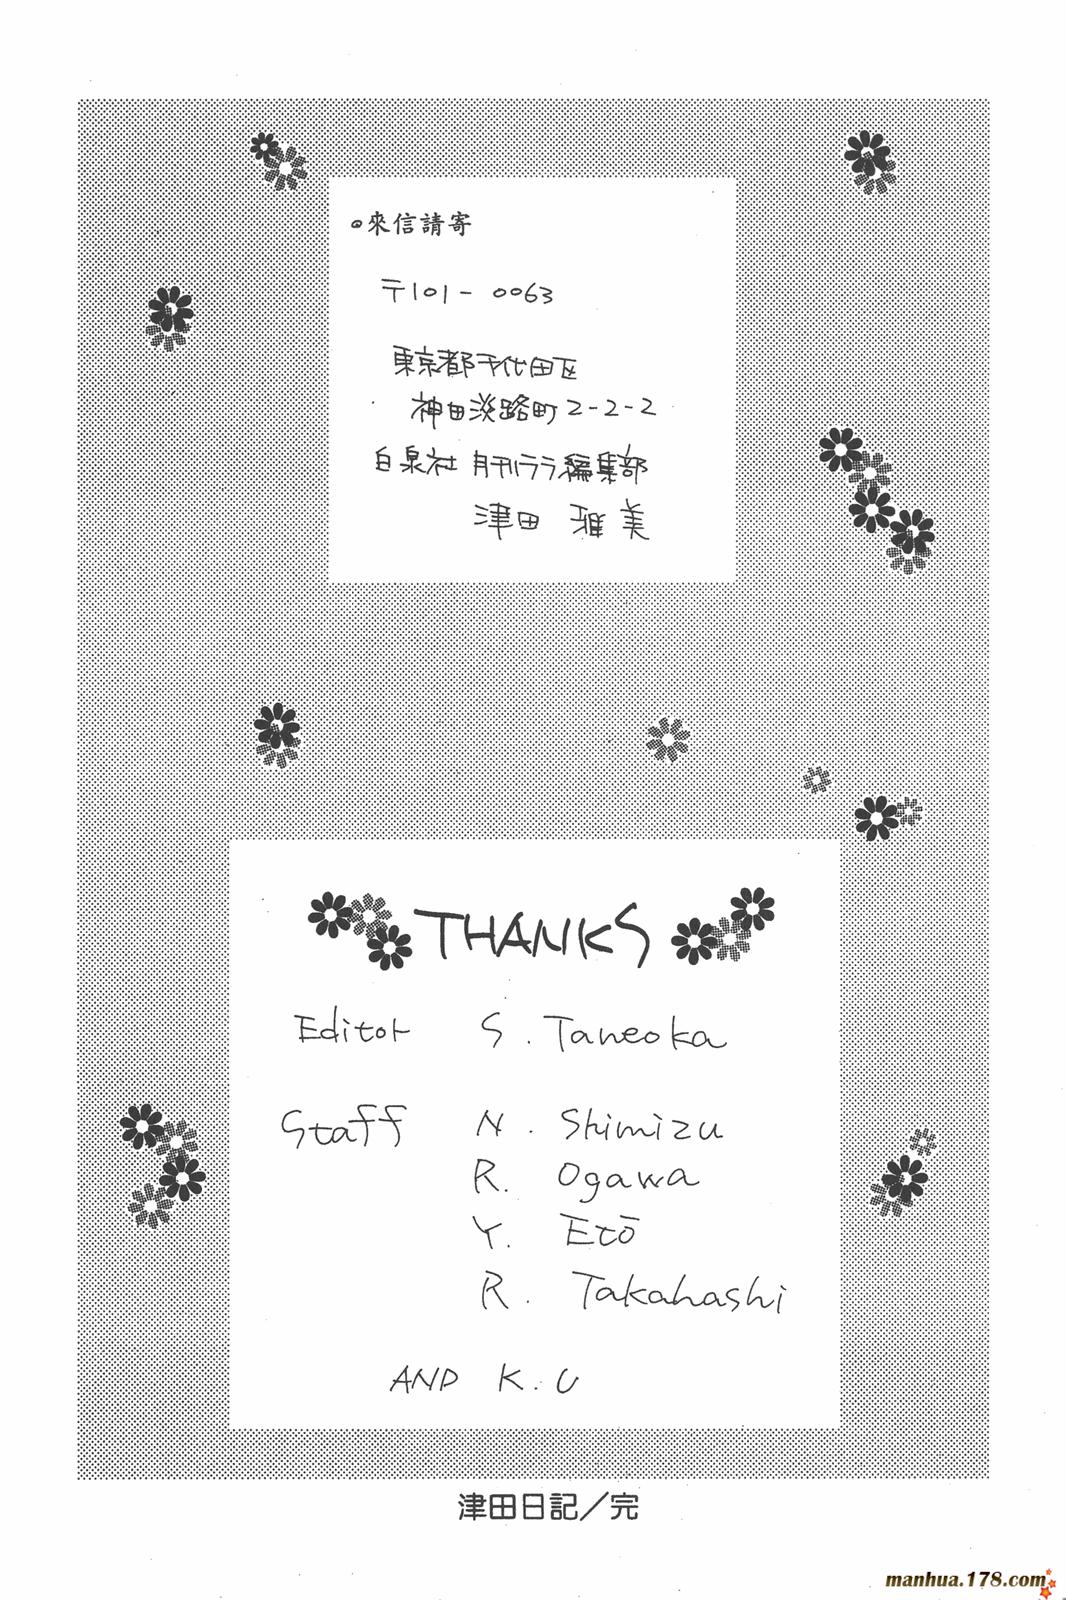 ◎來信請寄
〒101-0063
東京都千代田区
神田淡路町2-2-2
白泉社 月刊ララ編集部
津田 雅美
THANKS
Editor S. Taneoka
Staff N. Shimizu
R. Ogawa
Y. Etō
R. Takahashi
AND K.U
津田日記/完
manhua.178.com